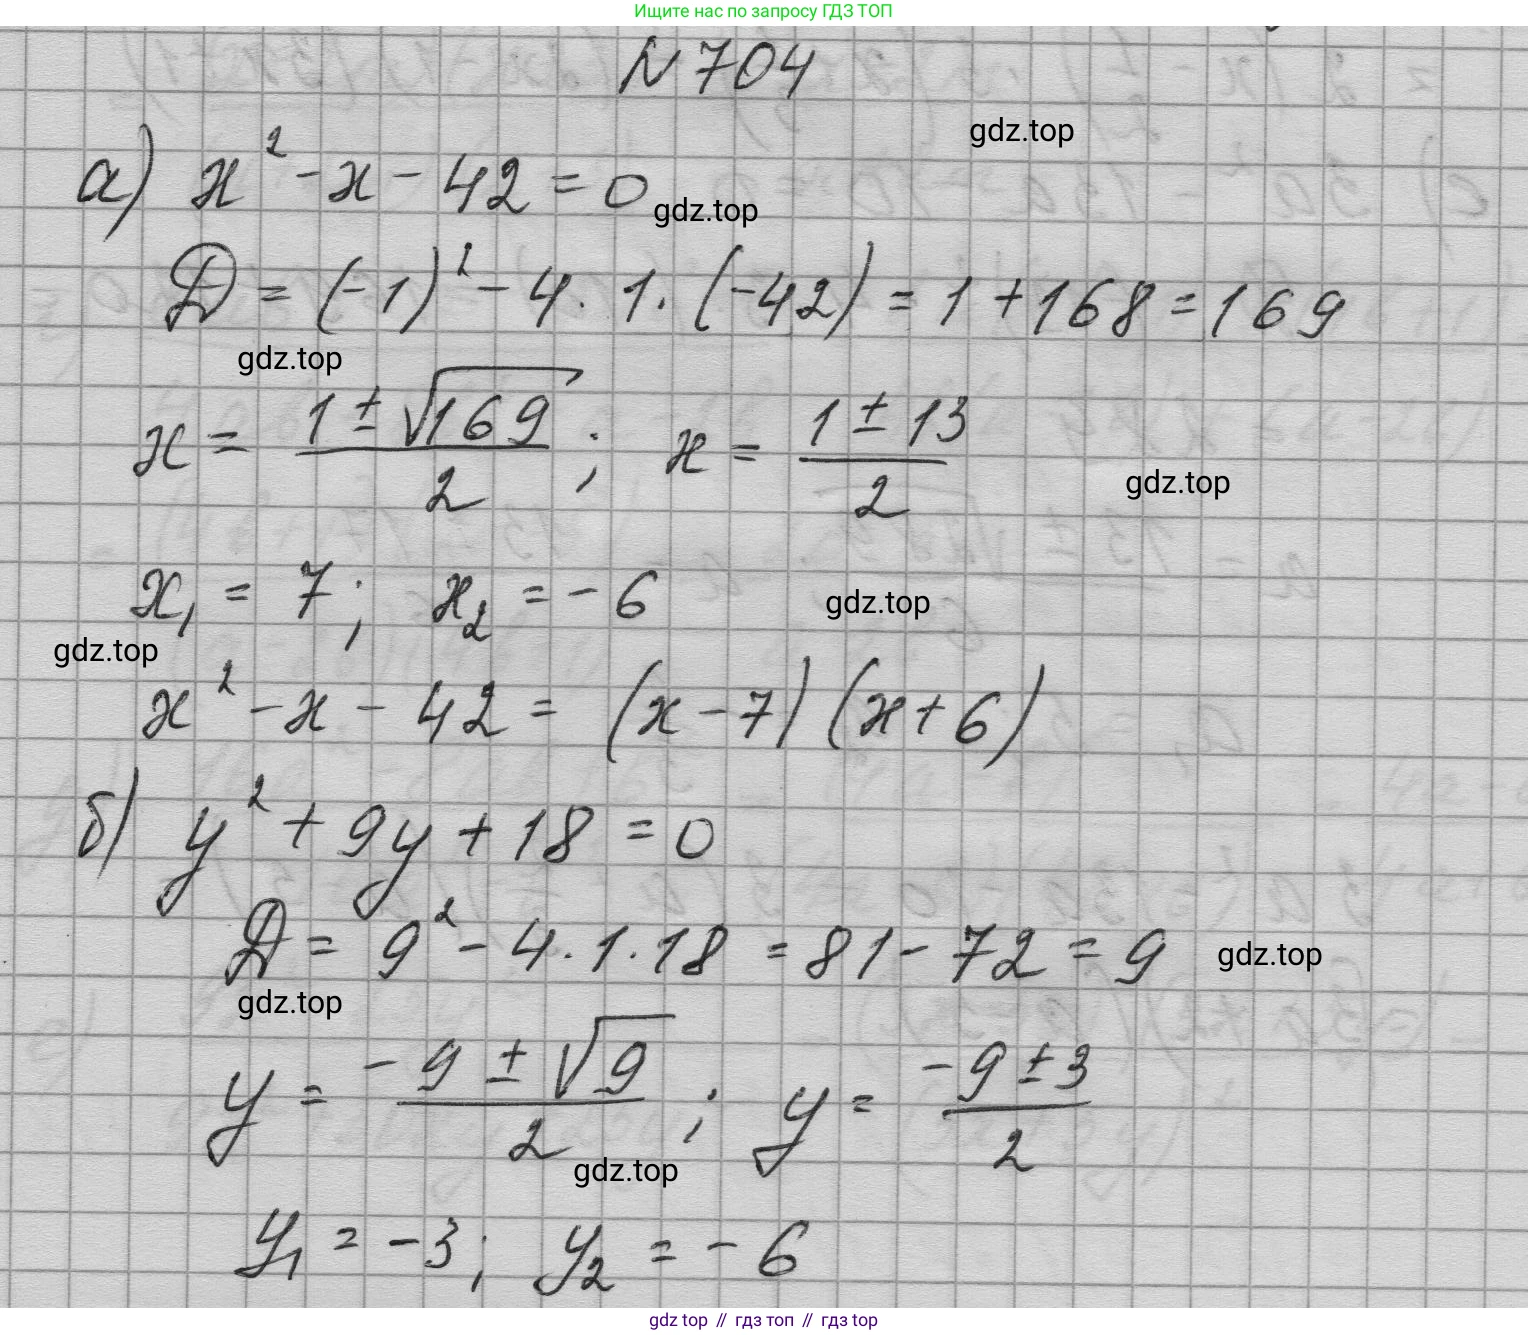 Ищите нас по запросу ГДЗ ТОП
N 704
gdz.top
а) x² - x - 42 = 0
gdz.top
D = (-1)² - 4 · 1 · (-42) = 1 + 168 = 169
gdz.top
x = (1 ± √169)/2 ; x = (1 ± 13)/2
gdz.top
x₁ = 7 ; x₂ = -6
gdz.top
gdz.top
x² - x - 42 = (x - 7)(x + 6)
б) y² + 9y + 18 = 0
D = 9² - 4 · 1 · 18 = 81 - 72 = 9
gdz.top
gdz.top
y = (-9 ± √9)/2 ; y = (-9 ± 3)/2
gdz.top
y₁ = -3 ; y₂ = -6
gdz top // гдз топ // гдз top